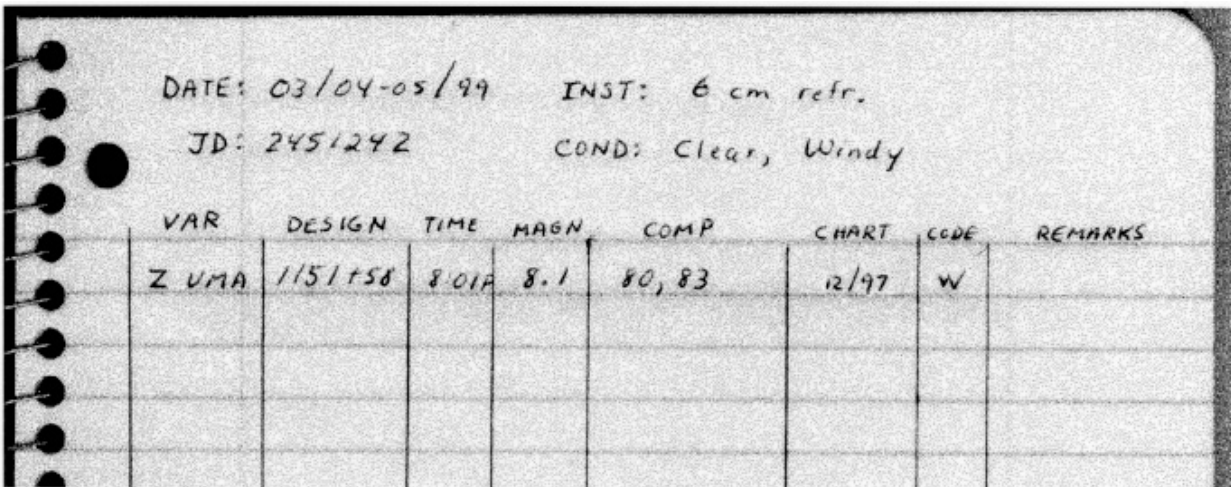 DATE: 03/04-05/99 INST: 6 cm refr.
JD: 2451242 COND: Clear, Windy
VAR DESIGN TIME MAGN COMP CHART CODE REMARKS
Z UMA 1151+58 8:01P 8.1 80, 83 12/97 W